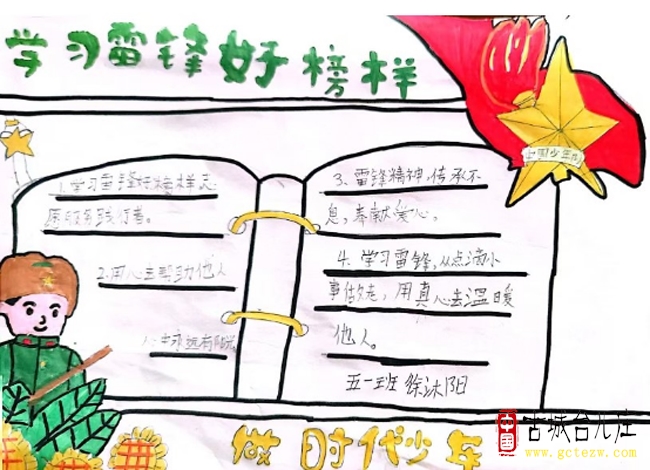 学习雷锋好榜样
中国少年
1.学习雷锋好榜样志
愿服务践行者。
2.用心去帮助他人
心中永远有阳光
3、雷锋精神,传承不
息,奉献爱心。
4、学习雷锋,从点滴小
事做起,用真心去温暖
他人。
五一班 徐沐阳
做时代少年
中国
古城台儿庄
www.gctezw.com